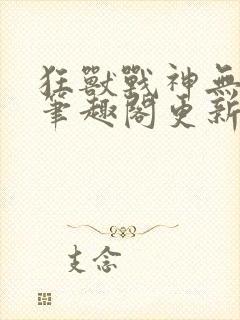 狂獸戰神無
筆趣閣更新
支念